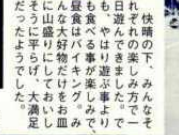 快晴の下、みんなそ
れぞれの楽しみ方で一
日遊んできました。で
も、やはり遊ぶ事より
も食べる事が楽しみで、
昼食はバイキング。み
んな大好物だけをお皿
に山盛りにしておいし
そうに平らげ、大満足
だったようでした。